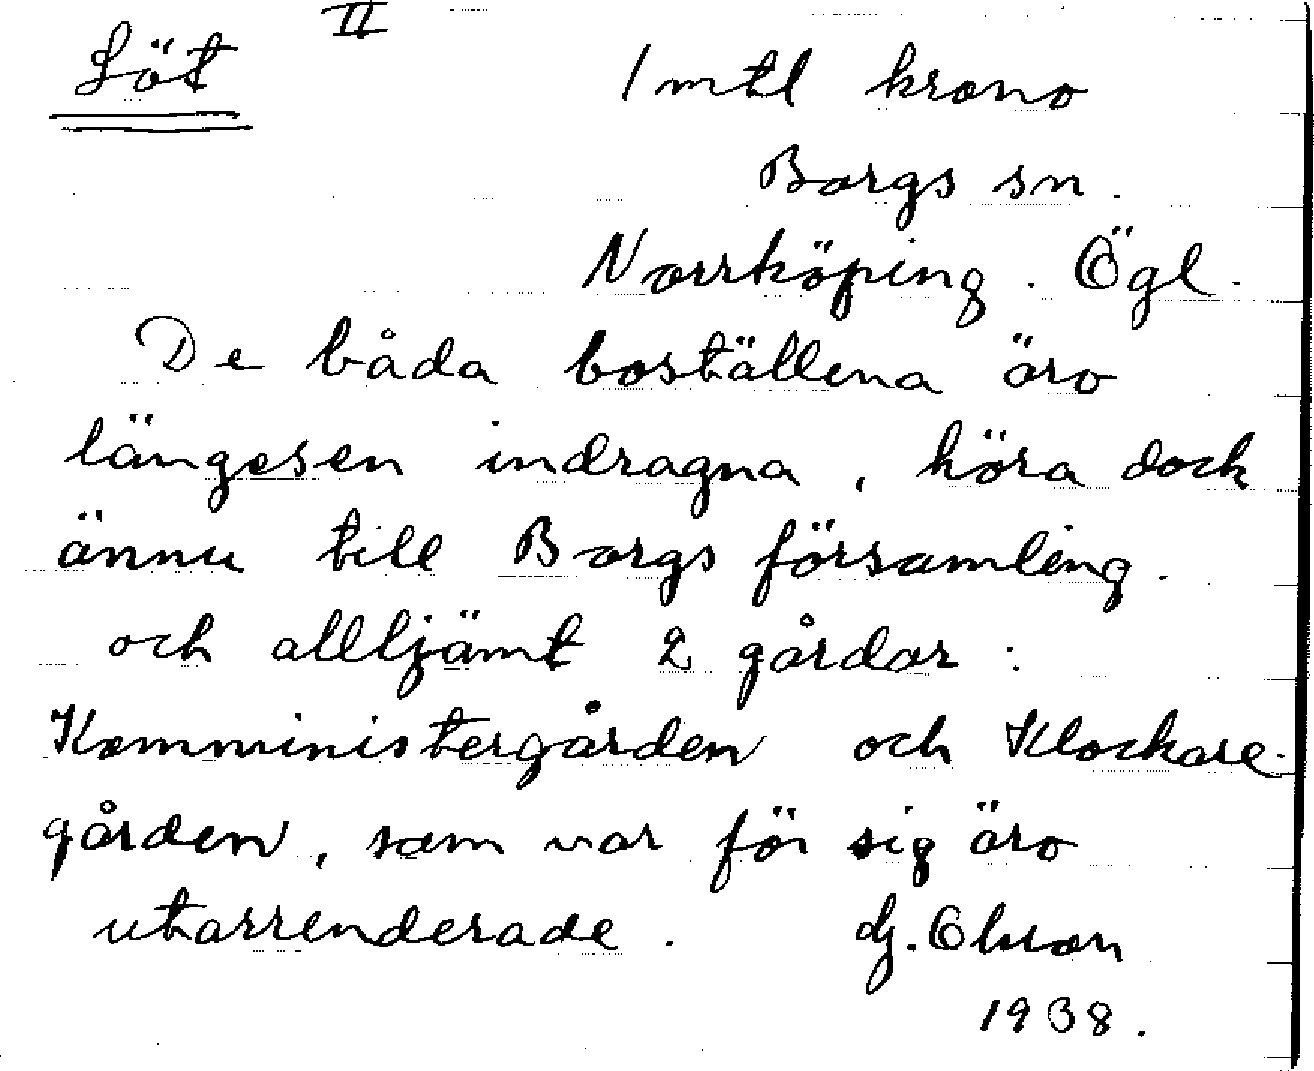 II
Löt
1 mtl krono
Borgs sn.
Norrköping. Ögl.
De båda boställena äro
längesen indragna, höra dock
ännu till Borgs församling.
och alltjämt 2 gårdar:
Komministergården och Klockare-
gården, som var för sig äro
utarrenderade. Hj. Olsson
1938.